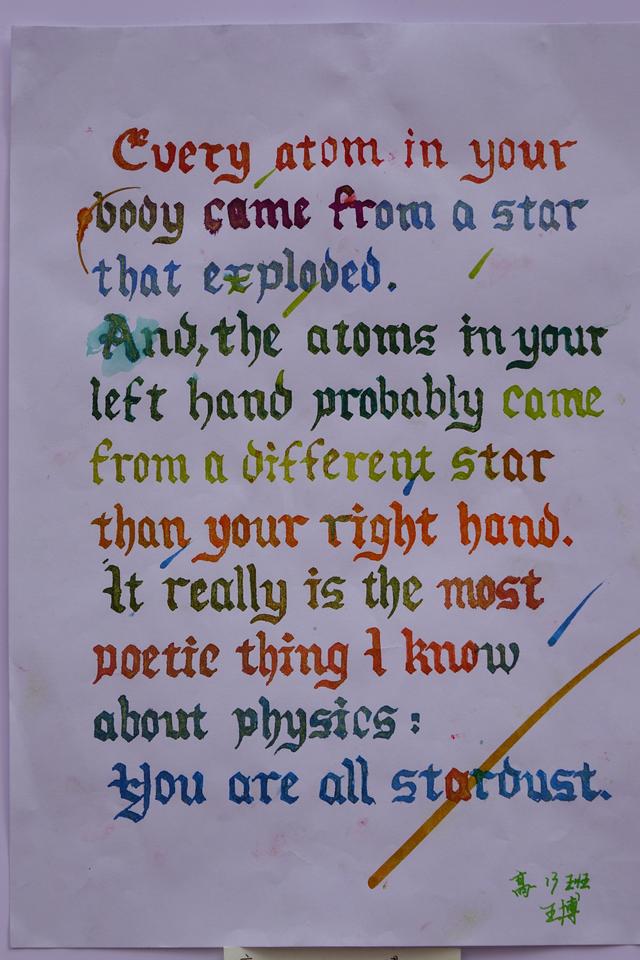 Every atom in your
body came from a star
that exploded.
And, the atoms in your
left hand probably came
from a different star
than your right hand.
It really is the most
poetic thing I know
about physics:
You are all stardust.
高一13班
王博